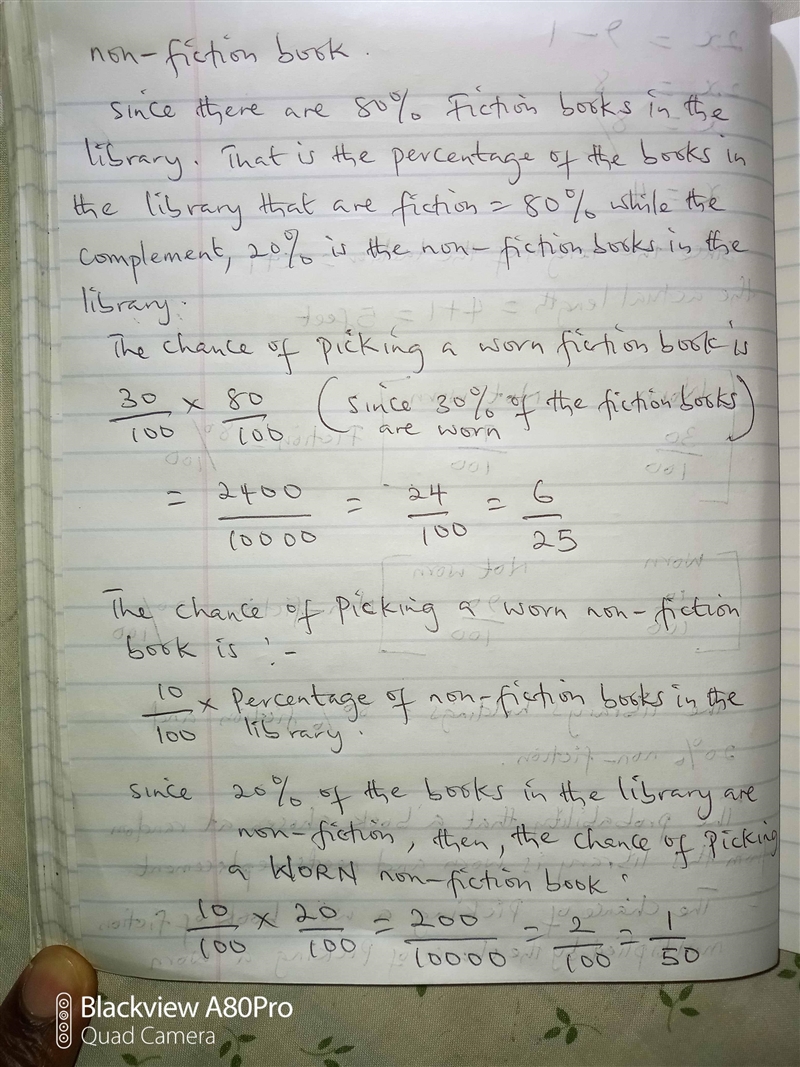 non-fiction book.
Since there are 80% Fiction books in the
library. That is the percentage of the books in
the library that are fiction = 80% while the
complement, 20% is the non-fiction books in the
library.
The chance of picking a worn fiction book is
30/100 × 80/100 (Since 30% of the fiction books
are worn)
= 2400/10000 = 24/100 = 6/25
The chance of Picking a worn non-fiction
book is :-
10/100 × Percentage of non-fiction books in the
library.
Since 20% of the books in the library are
non-fiction, then, the chance of Picking
a WORN non-fiction book :
10/100 × 20/100 = 200/10000 = 2/100 = 1/50
Blackview A80Pro
Quad Camera